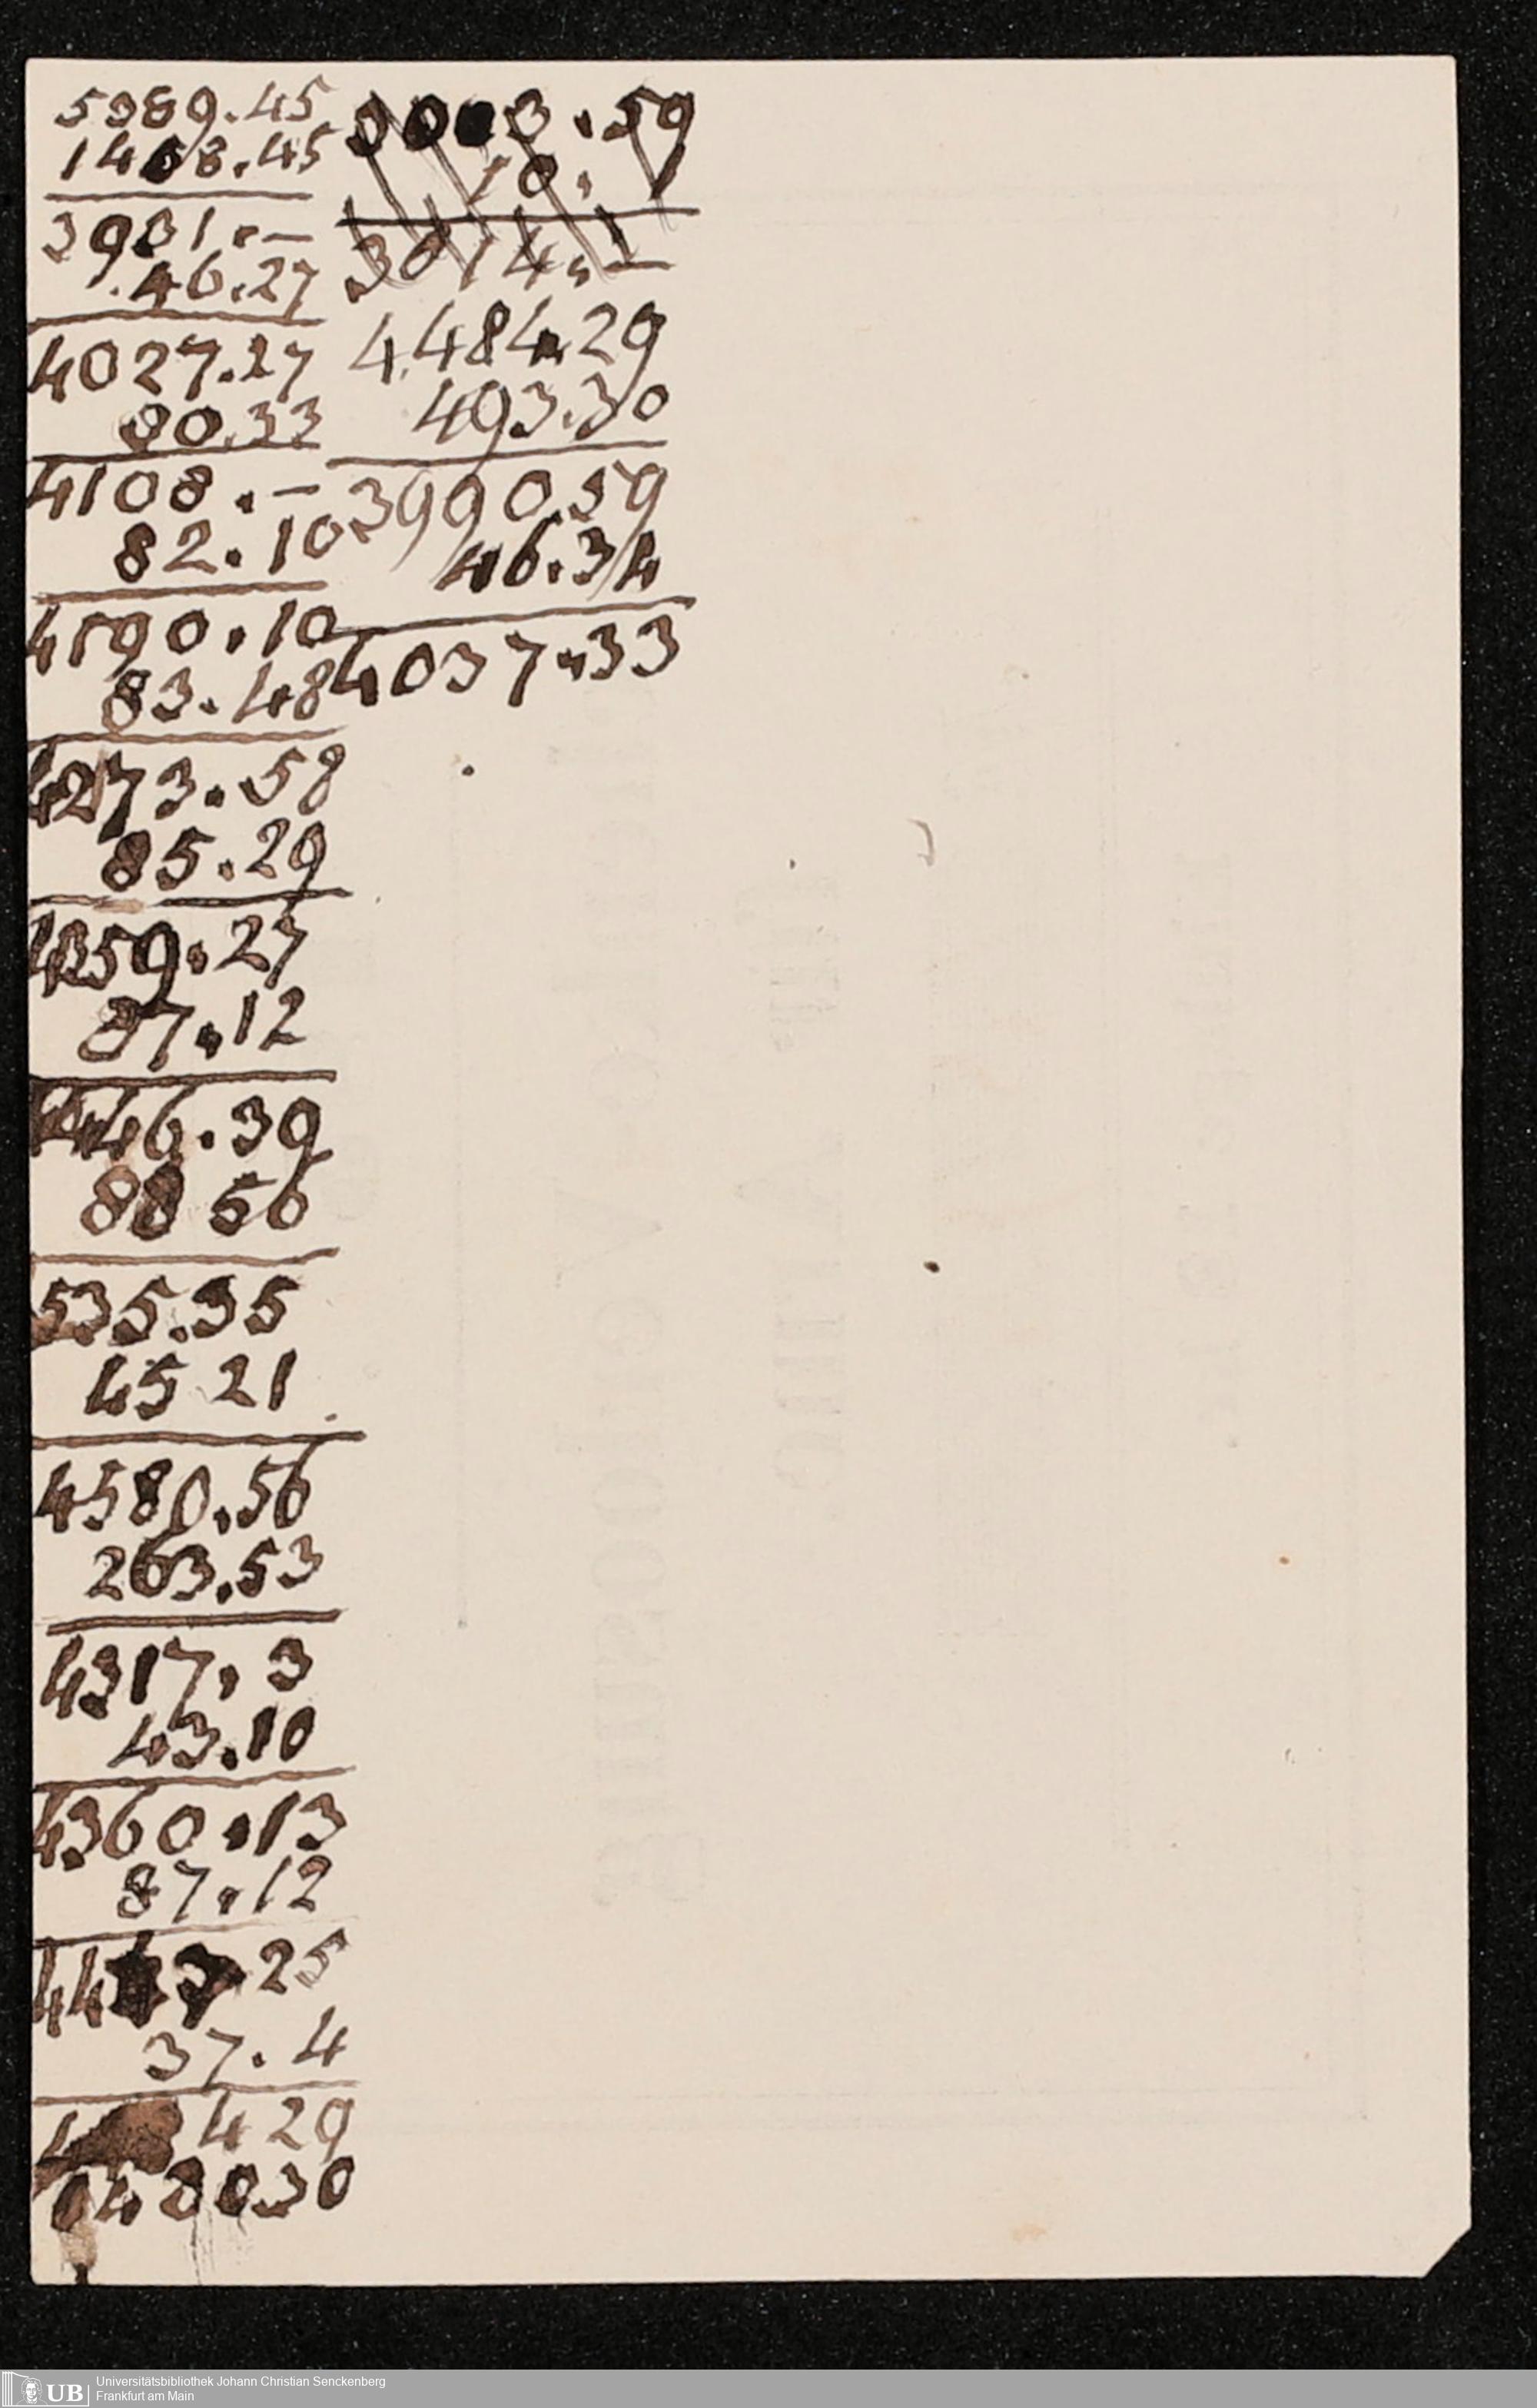 5389.45
1408.45
3981.—
46.27
4027.27
80.33
4108.—
82.10
4190.10
83.48
4273.58
85.29
4359.27
87.12
446.39
88 56
535.35
45 21
4580.56
263.53
4317. 3
43.10
4360.13
87.12
25
37. 4
4 29
3003.59
10. 1
3014.—
4.484.29
493.30
3990.59
46.34
4037.33
UB Universitätsbibliothek Johann Christian Senckenberg
Frankfurt am Main